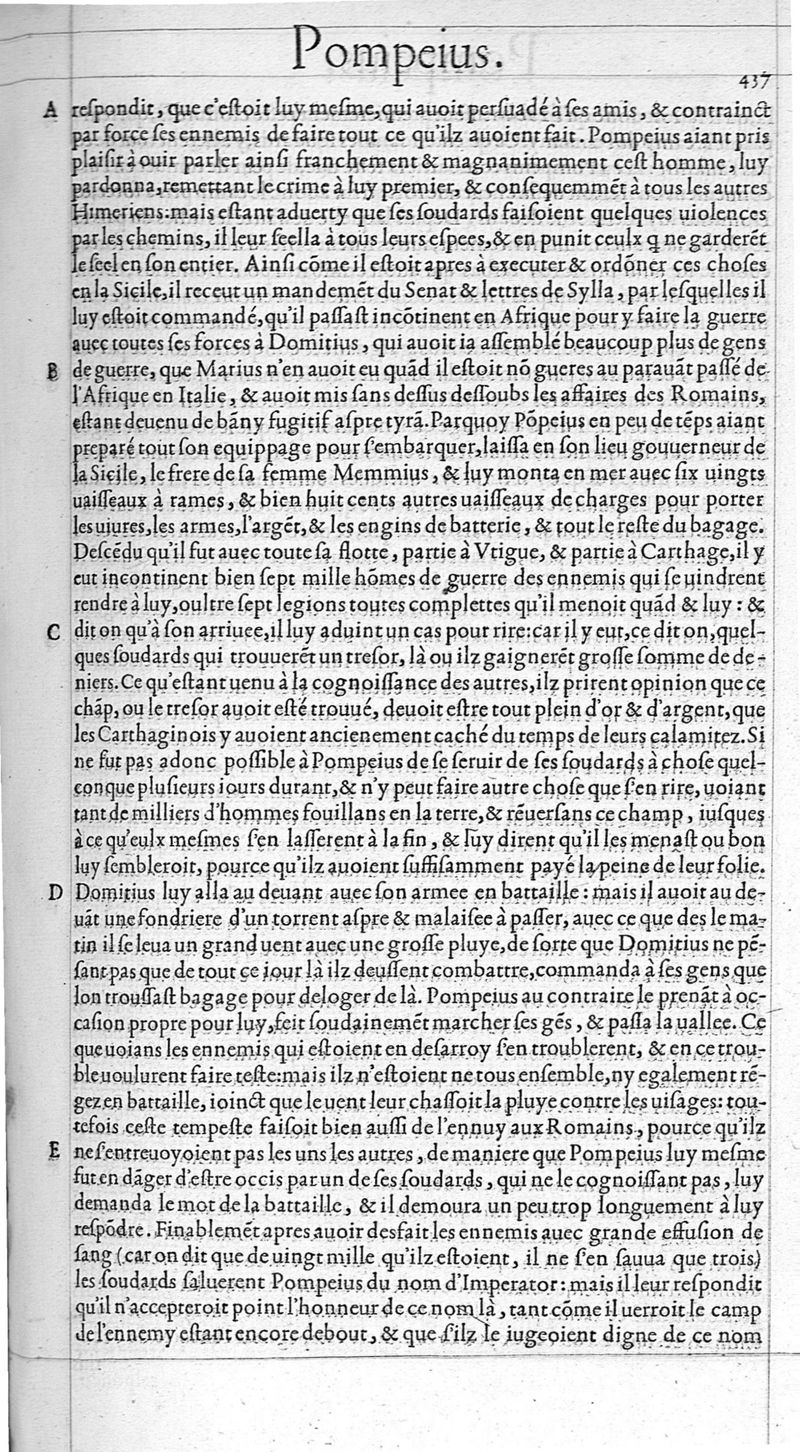 Pompeius.
437
A respondit, que c'eſtoit luy meſme, qui auoit perſuadé à ſes amis, & contrainct
par force ſes ennemis de faire tout ce qu'ilz auoient fait. Pompeius aiant pris
plaiſir à ouir parler ainſi franchement & magnanimement ceſt homme, luy
pardonna, remettant le crime à luy premier, & conſequemmẽt à tous les autres
Himeriens: mais eſtant aduerty que ſes ſoudards faiſoient quelques uiolences
par les chemins, il leur ſeella à tous leurs eſpees, & en punit ceulx q̃ ne garderẽt
le ſeel en ſon entier. Ainſi cõme il eſtoit apres à executer & ordõner ces choſes
en la Sicile, il receut un mandemẽt du Senat & lettres de Sylla, par leſquelles il
luy eſtoit commandé, qu'il paſſaſt incõtinent en Afrique pour y faire la guerre
auec toutes ſes forces à Domitius, qui auoit ia aſſemblé beaucoup plus de gens
B de guerre, que Marius n'en auoit eu quãd il eſtoit nõ gueres au parauãt paſſé de
l'Afrique en Italie, & auoit mis ſans deſſus deſſoubs les affaires des Romains,
eſtant deuenu de bãny fugitif aſpre tyrã. Parquoy Põpeius en peu de tẽps aiant
preparé tout ſon equippage pour ſ'embarquer, laiſſa en ſon lieu gouuerneur de
la Sicile, le frere de ſa femme Memmius, & luy monta en mer auec ſix uingts
uaiſſeaux à rames, & bien huit cents autres uaiſſeaux de charges pour porter
les uiures, les armes, l'argẽt, & les engins de batterie, & tout le reſte du bagage.
Deſcẽdu qu'il fut auec toute ſa flotte, partie à Vtique, & partie à Carthage, il y
eut incontinent bien ſept mille hõmes de guerre des ennemis qui ſe uindrent
rendre à luy, oultre ſept legions toutes complettes qu'il menoit quãd & luy: &
C dit on qu'à ſon arriuee, il luy aduint un cas pour rire: car il y eut, ce dit on, quel-
ques ſoudards qui trouuerẽt un treſor, là ou ilz gaignerẽt groſſe ſomme de de-
niers. Ce qu'eſtant uenu à la cognoiſſance des autres, ilz prirent opinion que ce
chãp, ou le treſor auoit eſté trouué, deuoit eſtre tout plein d'or & d'argent, que
les Carthaginois y auoient ancienement caché du temps de leurs calamitez. Si
ne fut pas adonc poſſible à Pompeius de ſe ſeruir de ſes ſoudards à choſe quel-
conque pluſieurs iours durant, & n'y peut faire autre choſe que ſ'en rire, uoiant
tant de milliers d'hommes fouillans en la terre, & rẽuerſans ce champ, iuſques
à ce qu'eulx meſmes ſ'en laſſerent à la fin, & luy dirent qu'il les menaſt ou bon
luy ſembleroit, pource qu'ilz auoient ſuffiſamment payé la peine de leur folie.
D Domitius luy alla au deuant auec ſon armee en battaille: mais il auoit au de-
uãt une fondriere d'un torrent aſpre & malaiſee à paſſer, auec ce que des le ma-
tin il ſe leua un grand uent auec une groſſe pluye, de ſorte que Domitius ne pẽ-
ſant pas que de tout ce iour là ilz deuſſent combattre, commanda à ſes gens que
lon trouſſaſt bagage pour deloger de là. Pompeius au contraire le prenãt à oc-
caſion propre pour luy, feit ſoudainemẽt marcher ſes gẽs, & paſſa la uallee. Ce
que uoians les ennemis qui eſtoient en deſarroy ſ'en troublerent, & en ce trou-
ble uoulurent faire teſte: mais ilz n'eſtoient ne tous enſemble, ny egalement rẽ-
gez en battaille, ioinct que le uent leur chaſſoit la pluye contre les uiſages: tou-
tefois ceſte tempeſte faiſoit bien auſſi de l'ennuy aux Romains, pource qu'ilz
E ne ſ'entreuoyoient pas les uns les autres, de maniere que Pompeius luy meſme
fut en dãger d'eſtre occis par un de ſes ſoudards, qui ne le cognoiſſant pas, luy
demanda le mot de la battaille, & il demoura un peu trop longuement à luy
reſpõdre. Finablemẽt apres auoir desfait les ennemis auec grande effuſion de
ſang (car on dit que de uingt mille qu'ilz eſtoient, il ne ſ'en ſauua que trois)
les ſoudards ſaluerent Pompeius du nom d'Imperator: mais il leur reſpondit
qu'il n'accepteroit point l'honneur de ce nom là, tant cõme il uerroit le camp
de l'ennemy eſtant encore debout, & que ſ'ilz le iugeoient digne de ce nom